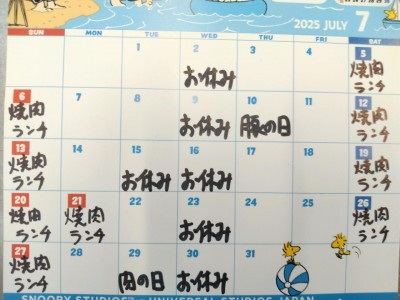 2025 JULY 7
SUN MON TUE WED THU FRI SAT
1 2 3 4 5
お休み 焼肉ランチ
6 7 8 9 10 11 12
焼肉ランチ お休み 豚の日 焼肉ランチ
13 14 15 16 17 18 19
焼肉ランチ お休み お休み 焼肉ランチ
20 21 22 23 24 25 26
焼肉ランチ 焼肉ランチ お休み 焼肉ランチ
27 28 29 30 31
焼肉ランチ 肉の日 お休み
SNOOPY STUDIOS™ UNIVERSAL STUDIOS JAPAN